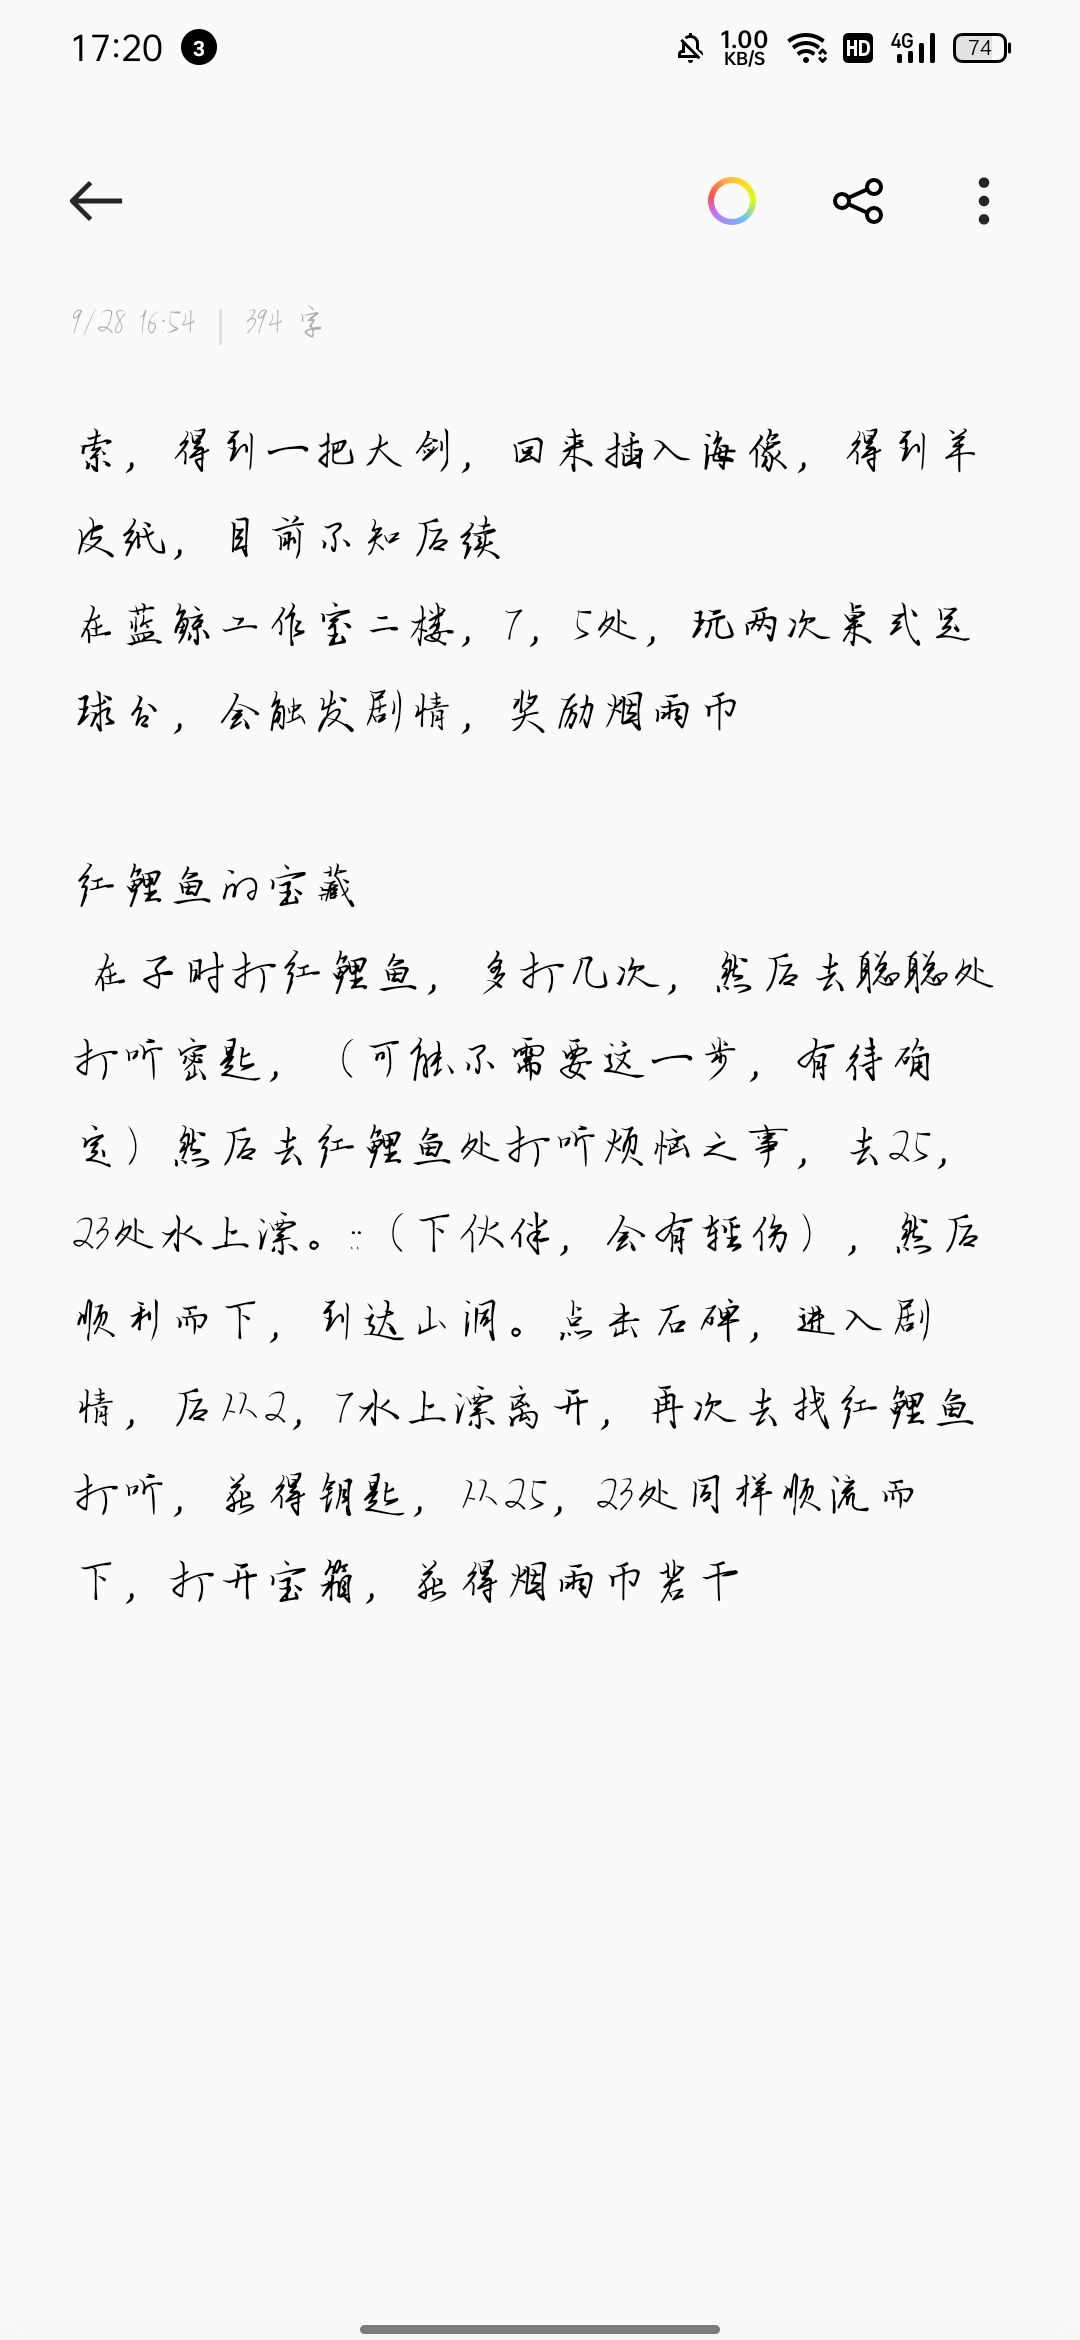 17:20 3 1.00 KB/S HD 4G 74
9/28 16:54 | 394 字
索，得到一把大剑，回来插入海像，得到羊
皮纸，目前不知后续
在蓝鲸工作室二楼，7，5处，玩两次桌式足
球台，会触发剧情，奖励烟雨币
红鲤鱼的宝藏
在子时打红鲤鱼，多打几次，然后去聪聪处
打听密匙，（可能不需要这一步，有待确
定）然后去红鲤鱼处打听烦恼之事，去25，
23处水上漂。::（下伙伴，会有轻伤），然后
顺利而下，到达山洞。点击石碑，进入剧
情，后从2，7水上漂离开，再次去找红鲤鱼
打听，获得钥匙，从25，23处同样顺流而
下，打开宝箱，获得烟雨币若干